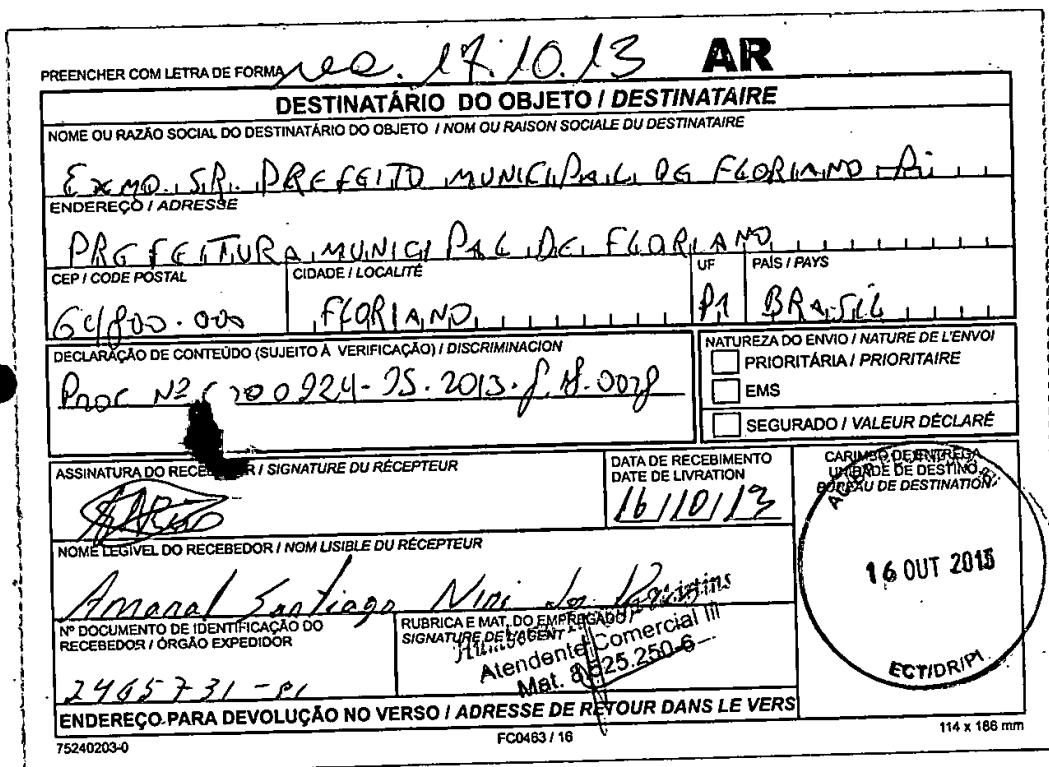 PREENCHER COM LETRA DE FORMA rec. 17.10.13 AR
DESTINATÁRIO DO OBJETO / DESTINATAIRE
NOME OU RAZÃO SOCIAL DO DESTINATÁRIO DO OBJETO / NOM OU RAISON SOCIALE DU DESTINATAIRE
EXMO. SR. PREFEITO MUNICIPAL DE FLORIANO - Pi
ENDEREÇO / ADRESSE
PREFEITURA MUNICIPAL DE FLORIANO
CEP / CODE POSTAL CIDADE / LOCALITÉ UF PAÍS / PAYS
64800-000 FLORIANO PI BRASIL
DECLARAÇÃO DE CONTEÚDO (SUJEITO À VERIFICAÇÃO) / DISCRIMINACION
NATUREZA DO ENVIO / NATURE DE L'ENVOI
PRIORITÁRIA / PRIORITAIRE
EMS
SEGURADO / VALEUR DÉCLARÉ
Proc Nº
ASSINATURA DO RECEBEDOR / SIGNATURE DU RÉCEPTEUR
DATA DE RECEBIMENTO
DATE DE LIVRATION
16/10/13
CARIMBO DE ENTREGA
UNIDADE DE DESTINO
BUREAU DE DESTINATION
16 OUT 2013
ECT/DR/PI
NOME LEGÍVEL DO RECEBEDOR / NOM LISIBLE DU RÉCEPTEUR
Amaral Santiago
Nº DOCUMENTO DE IDENTIFICAÇÃO DO
RECEBEDOR / ÓRGÃO EXPEDIDOR
2465731-PI
RUBRICA E MAT. DO EMPREGADO /
SIGNATURE DE L'AGENT
Martins
Atendente Comercial III
Mat. 8.525.250-6
ENDEREÇO PARA DEVOLUÇÃO NO VERSO / ADRESSE DE RETOUR DANS LE VERS
75240203-0 FC0463 / 16 114 x 186 mm